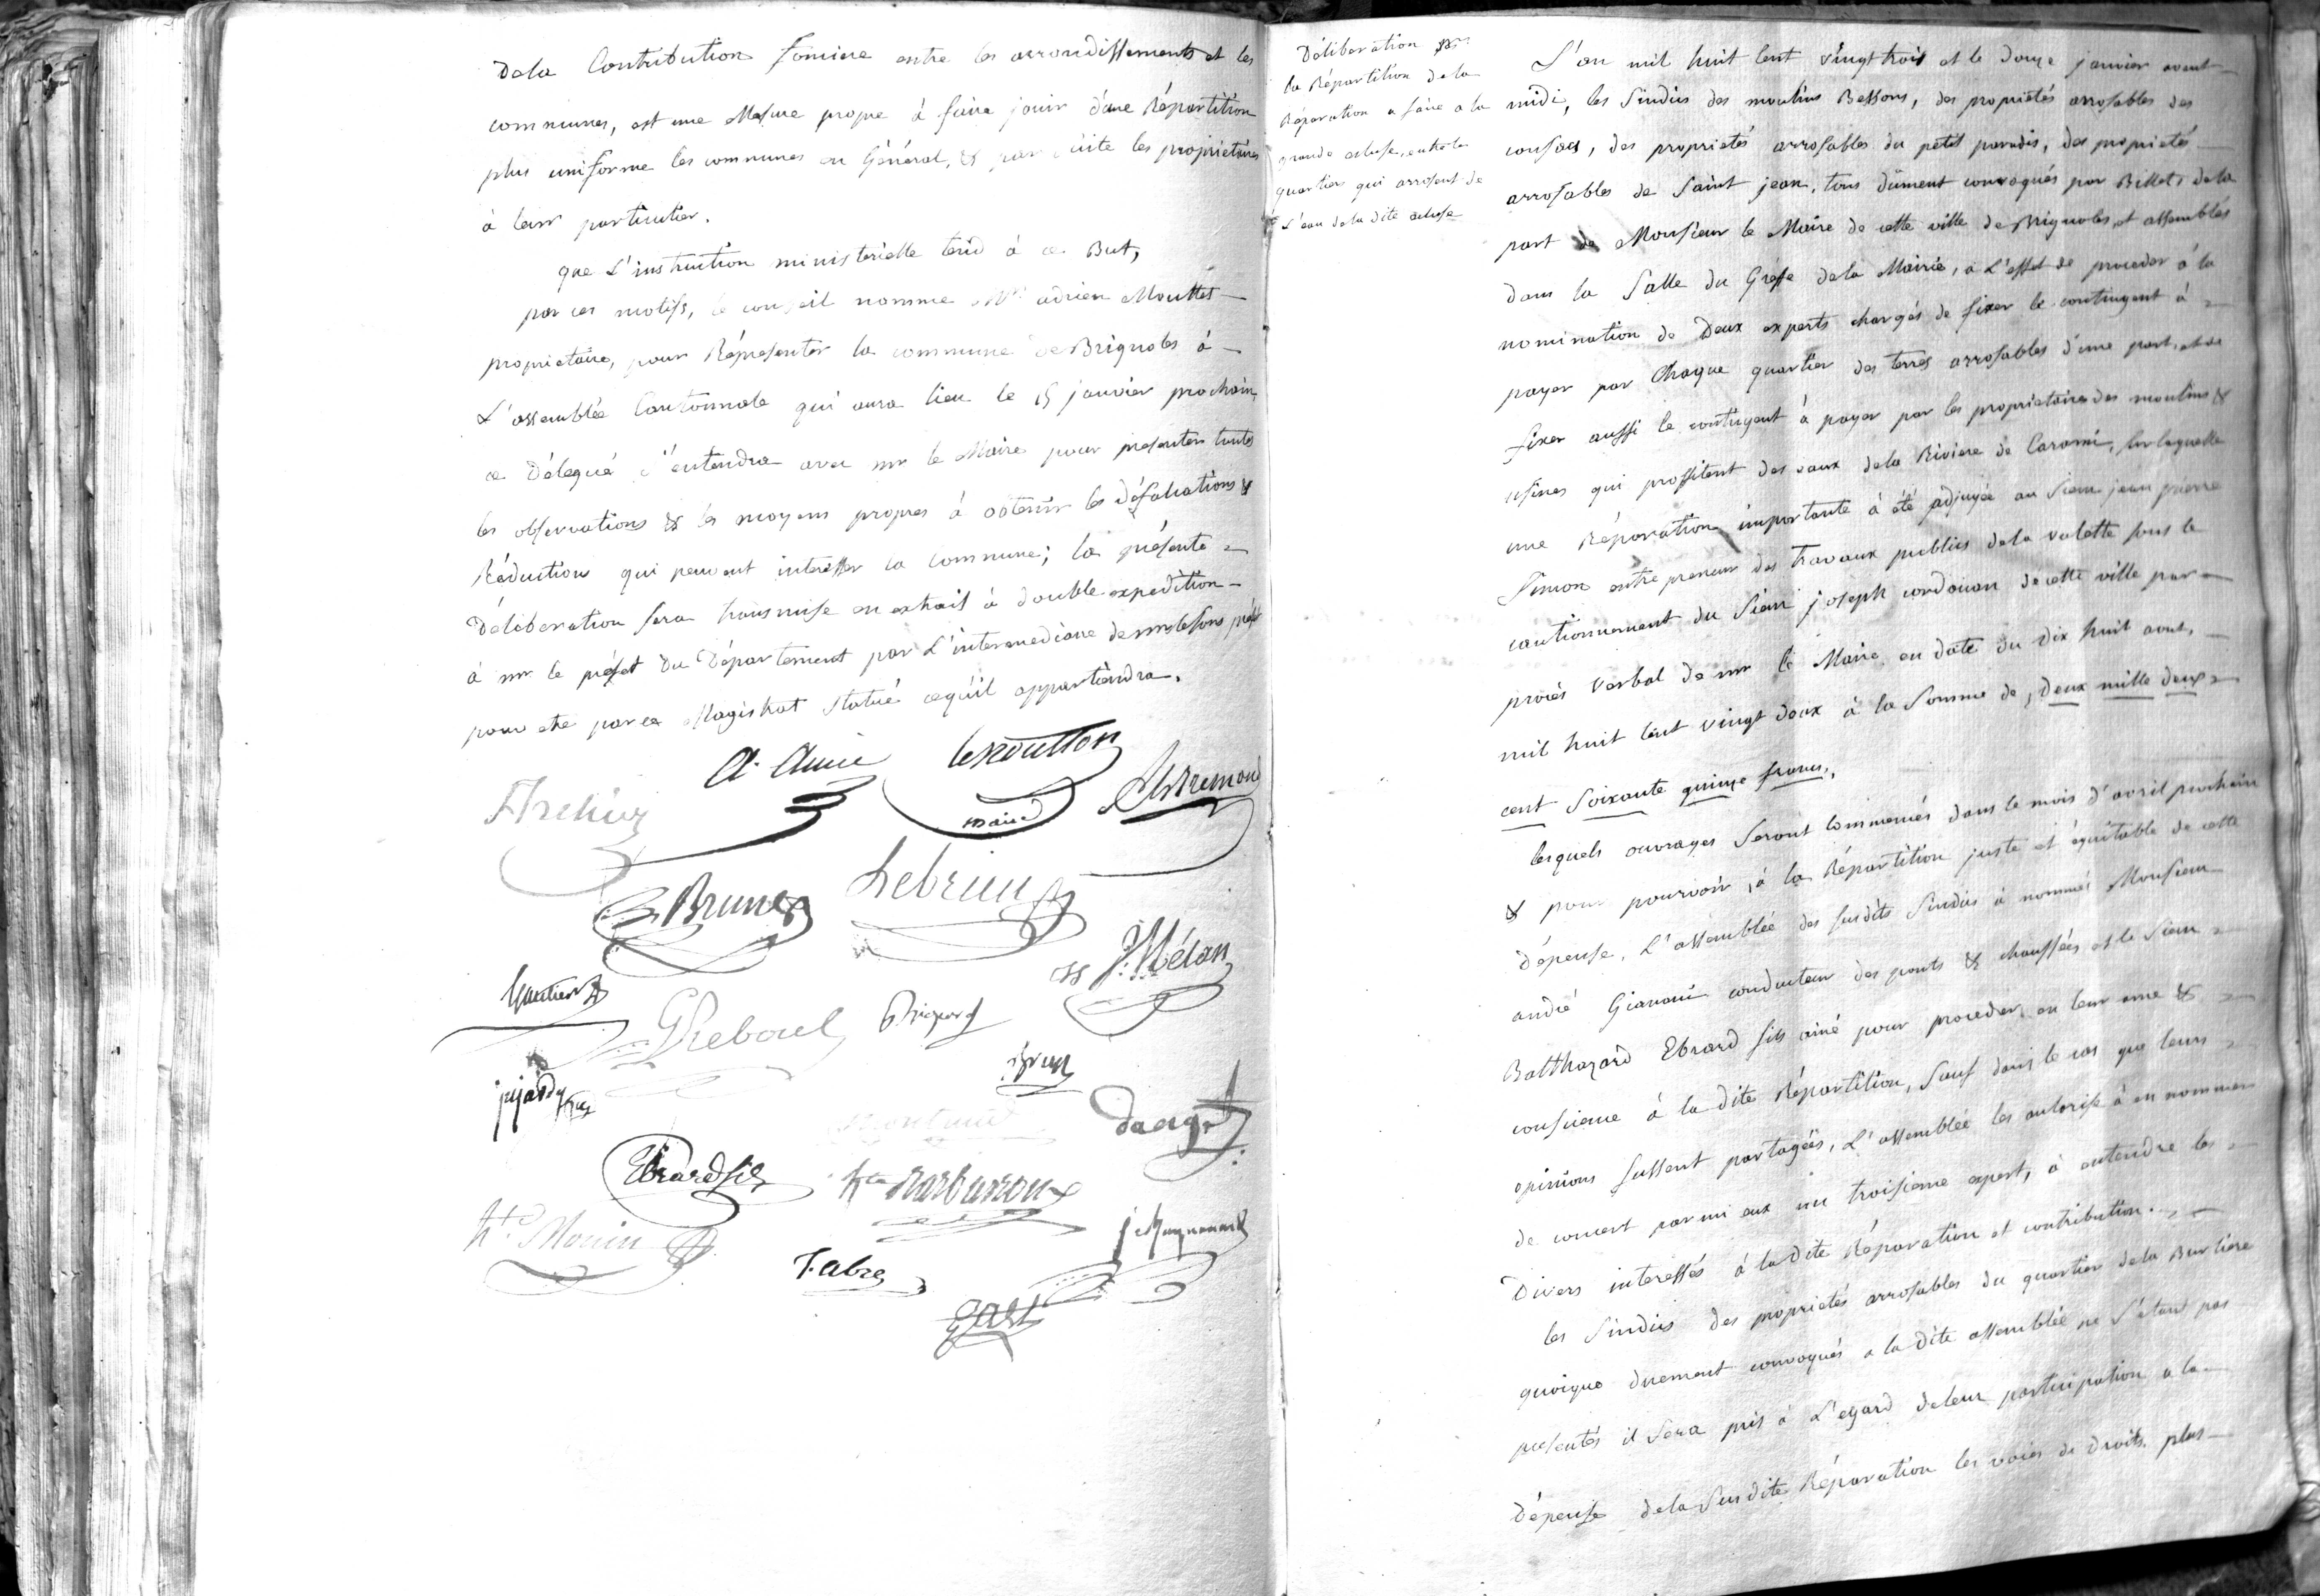 dela Contribution fonciere entre les arrondissements et les
communes, est une Mesure propre à faire jouir d'une Répartition
plus uniforme les communes en Général, & par suite les propriétaires
à leur particulier.
que L'instruction ministérielle tend à ce But,
par ces motifs, le conseil nomme Mr adrien Mouttet
propriétaire, pour Réprésenter la commune de Brignoles à
L'assemblée Cantonnale qui aura lieu le 15 janvier prochain,
ce Délegué s'entendra avec mr le Maire pour présenter toutes
les observations & les moyens propres à obtenir les défalcations &
Réduction qui peuvent interesser la commune; la présente
Déliberation sera transmise en extrait à double expedition
à mr le préfet du Département par L'intermediaire de mr le sous préfet
pour etre par ce Magistrat statué cequ'il appartiendra.
Lebrun
maire
Brun
Gautier
Reboul
Ebrard fils
hte Barbaroux
hte Monin
Fabre
Déliberation sur
la Répartition dela
Réparation a faire a la
grande ecluse, entre les
quartiers qui arrosent de
L'eau dela dite ecluse
L'an mil huit cent vingt trois et le douze janvier avant
midi, les Sindics des moulins Bessons, des propriétés arrosables des
consacs, des proprietés arrosables du petit paradis, des proprietés
arrosables de Saint jean, tous dûment convoqués par Billets dela
part de Monsieur le Maire de cette ville de Brignoles, et assemblés
dans la Salle du Greffe dela Mairie, à L'effet de proceder à la
nomination de Deux experts chargés de fixer le contingent à
payer par Chaque quartier des terres arrosables d'une part, et de
fixer aussi le contingent à payer par les proprietaires des moulins &
usines qui proffitent des eaux dela Riviere de Carami, sur laquelle
une Réparation importante à été adjugée au Sieur jean pierre
Simon entrepreneur des travaux publics dela valette sous le
cautionnement du Sieur joseph cordouan de cette ville par
procès verbal de mr le Maire en date du dix huit aout,
mil huit cent vingt deux à la Somme de, deux mille deux
cent Soixante quinze francs,
lesquels ouvrages seront commencés dans le mois d'avril prochain
& pour pourvoir, à la Répartition juste et équitable de cette
dépense, L'assemblée des susdits Sindics à nommé Monsieur
andré Giavani conducteur des ponts & chaussées et le Sieur
Balthazard Ebrard fils ainé pour proceder en leur ame &
conscience à la dite Répartition, Sauf dans le cas que leurs
opinions fussent partagées, L'assemblée les autorise à en nommer
de concert parmi eux un troisieme expert, à entendre les
Divers interessés à la dite Réparation et contribution.
les Sindics des propriétés arrosables du quartier dela Burliere
quoique duement convoqués a la dite assemblée ne S'etant pas
presentés il Sera pris à L'egard deleur participation a la
dépense dela Susdite Réparation les voies de droits. plus